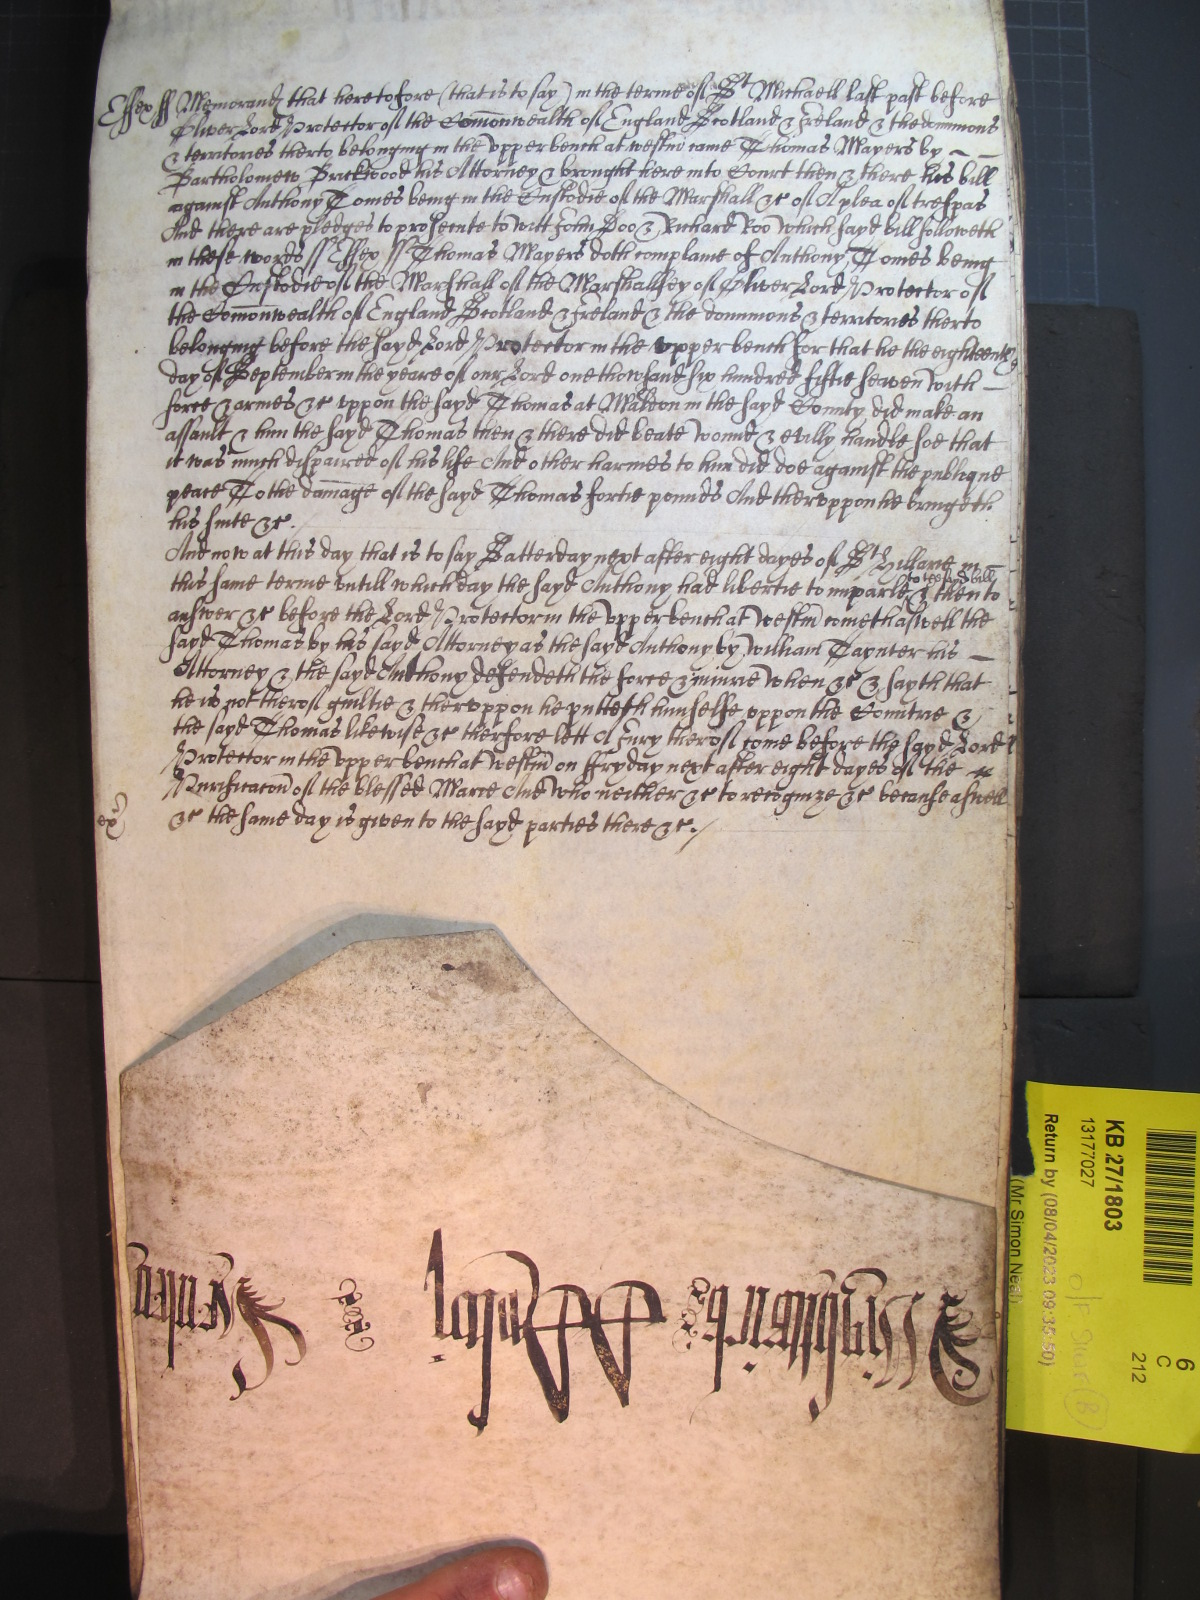 Essex ss Memorand that heretofore (that is to say) in the terme of St Michaell last past before
Oliver Lord Protector of the Comonwealth of England Scotland & Ireland & the dominions
& territories therto belonging in the upper bench at westm came Thomas Mayers by
Bartholomew Prickwood his Attorney & brought here into Court then & there his bill
against Anthony Tomes being in the Custodie of the Marshall &c of A plea of trespas
And there are pledges to prosecute to witt John Doo & Richard Roo Which sayd bill followeth
in these words ss Essex ss Thomas Mayers doth complaine of Anthony Tomes being
in the Custodie of the Marshall of the Marshallsey of Oliver Lord Protector of
the Comonwealth of England Scotland & Ireland & the dominions & territories therto
belonging before the sayd Lord Protector in the upper bench for that he the eighteenth
day of September in the yeare of our Lord one thowsand six hundred fiftie seaven with
force & armes &c uppon the sayd Thomas at Maldon in the sayd County did make an
assault & him the sayd Thomas then & there did beate wound & evilly handle soe that
it was much dispaired of his life And other harmes to him did doe against the publique
peace To the damage of the sayd Thomas fortie pounds And theruppon he bringeth
his suite &c.
And now at this day that is to say Satterday next after eight dayes of St Hillarie in
this same terme untill which day the sayd Anthony had libertie to imparle to the sayd bill & then to
answer &c before the Lord Protector in the upper bench at westm cometh aswell the
sayd Thomas by his sayd Attorney as the sayd Anthony by William Taynter his
Attorney & the sayd Anthony defendeth the force & iniurie when &c & sayth that
he is not therof guiltie & theruppon he putteth himselfe uppon the Countrie &
the sayd Thomas likewise &c therfore lett A Jury therof come before the sayd Lord
Protector in the upper bench at westm on Fryday next after eight dayes of the
Purificacon of the blessed Marie And who neither &c to recognize &c because aswell
&c the same day is given to the sayd parties there &c.
KB 27/1803
13177027
Return by (08/04/2023 09:35:50)
(Mr Simon Neal)
6
C
212